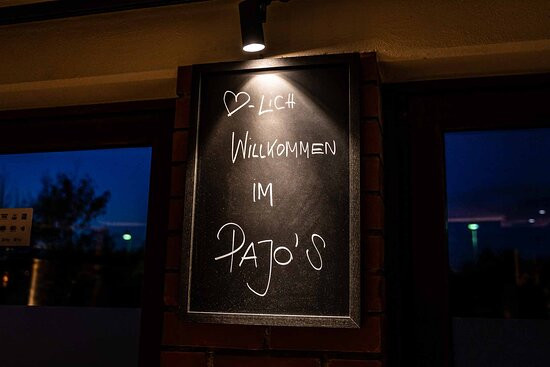 ♡-LICH
WILLKOMMEN
IM
PAJO'S